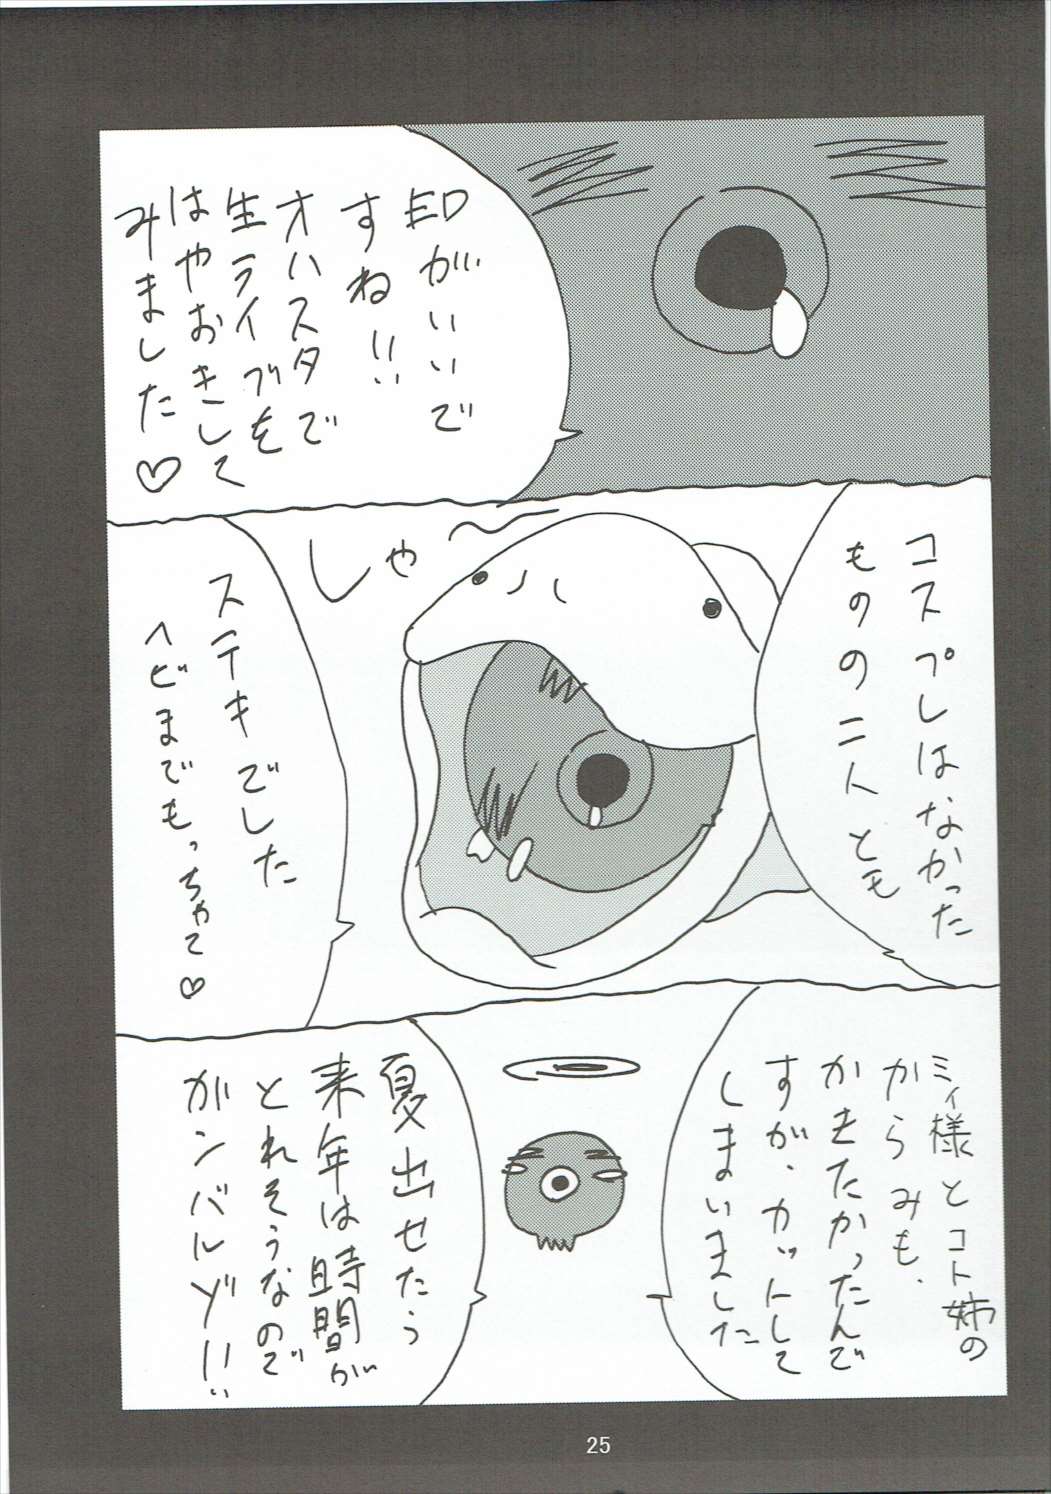 印がいいで
すね!!
オハスタで
生ライブを
はやおきして
みました♡
コスプレはなかった
ものの二人とも
しゃ～
ステキでした
ヘビまでもっちゃて♡
ミィ様とコト姉の
からみも、
かきたかったんで
すが、カットして
しまいました
夏出せたら
来年は時間が
とれそうなので
ガンバルゾ!!
25